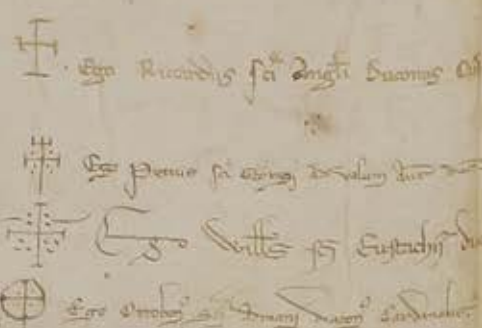 Ego Riccardus sci Angli diaconus Car
Ego Petrus sci Georgij ad velum aur diac
Ego Wills sci Eustachij di
Ego Ottobon sci Adriani diacon Cardinalis